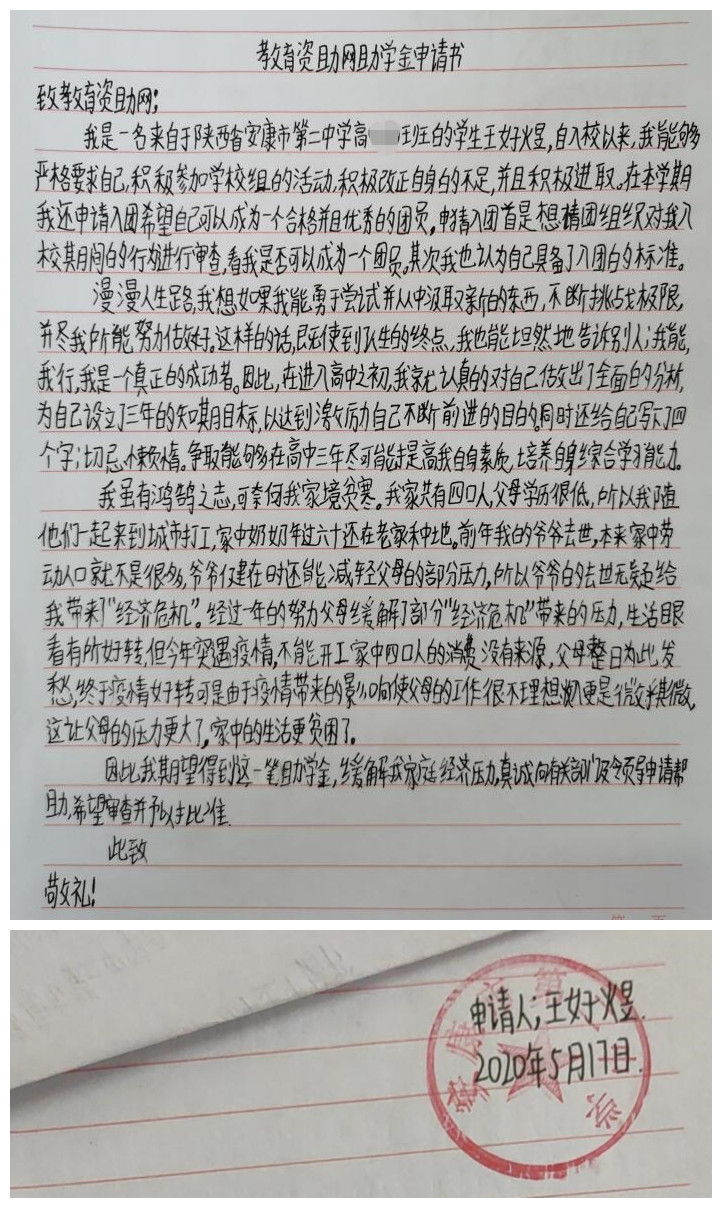 教育资助网助学金申请书
致教育资助网:
我是一名来自于陕西省安康市第二中学高 班的学生王好煜,自入校以来,我能够
严格要求自己,积极参加学校组的活动,积极改正自身的不足,并且积极进取。在本学期
我还申请入团希望自己可以成为一个合格并且优秀的团员,申请入团首是想请团组织对我入
校其期间的行为进行审查,看我是否可以成为一个团员。其次我也认为自己具备了入团的标准。
漫漫人生路,我想如果我能勇于尝试并从中汲取新的东西,不断挑战极限,
并尽我所能努力做好。这样的话,即使到人生的终点,我也能坦然地告诉别人:我能,
我行,我是一个真正的成功者。因此,在进入高中之初,我就认真的对自己做出了全面的分析,
为自己设立了三年的短期目标,以达到激励自己不断前进的目的。同时还给自己写下了四
个字:切忌懒惰。争取能够在高中三年尽可能提高我自身素质,培养自身综合学习能力。
我虽有鸿鹄之志,可奈何我家境贫寒。我家共有四口人,父母学历很低,所以我随
他们一起来到城市打工,家中奶奶年过六十还在老家种地。前年我的爷爷去世,本来家中劳
动人口就不是很多,爷爷健在时还能减轻父母的部分压力,所以爷爷的去世无疑给
我带来了“经济危机”。经过一年的努力父母缓解了部分“经济危机”带来的压力,生活眼
看有所好转,但今年突遇疫情,不能开工家中四口人的消费没有来源,父母整日为此发
愁,终于疫情好转可是由于疫情带来的影响使父母的工作很不理想收入更是微乎其微,
这让父母的压力更大了,家中的生活更贫困了。
因此我期望得到这一笔助学金,缓解我家庭经济压力。真诚向有关部门及领导申请帮
助,希望审查并予以批准.
此致
敬礼!
申请人:王好煜.
2020年5月17日.